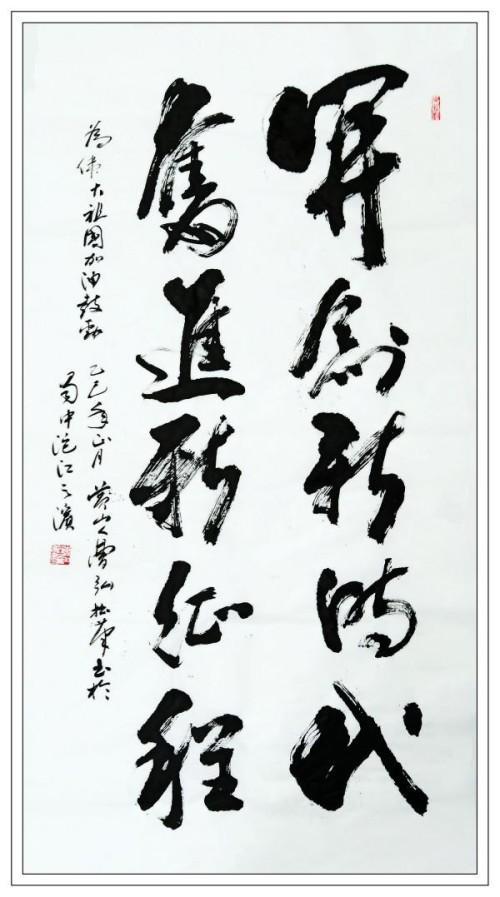 開創新時代
奮進新征程
為偉大祖國加油鼓勁 乙巳年正月 黃山人曹弘 拙筆書於
蜀中沱江之濱